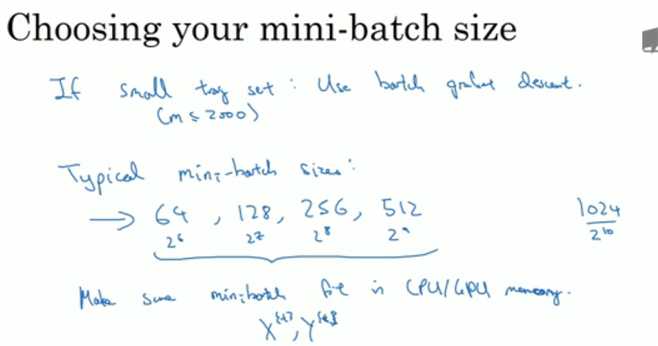 Choosing your mini-batch size
If small tray set : Use batch gradient descent.
(m ≤ 2000)
Typical mini-batch sizes:
→ 64 , 128, 256, 512
2⁶ 2⁷ 2⁸ 2⁹
1024
2¹⁰
Make sure mini-batch fit in CPU/GPU memory.
X^{t}, Y^{t}